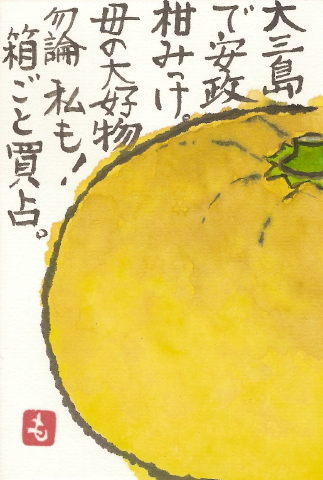 大三島
で安政
柑みっけ。
母の大好物
勿論 私も!
箱ごと買占。
も